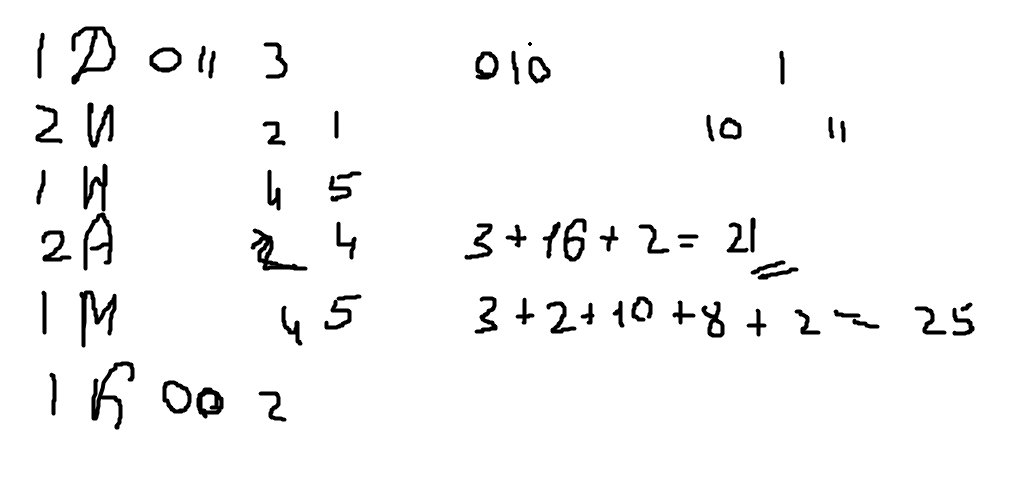 1 Д 011 3 010 1
2 И 2 1 10 11
1 Н 4 5
2 А 2 4 3 + 16 + 2 = 21
1 М 4 5 3 + 2 + 10 + 8 + 2 = 25
1 К 00 2